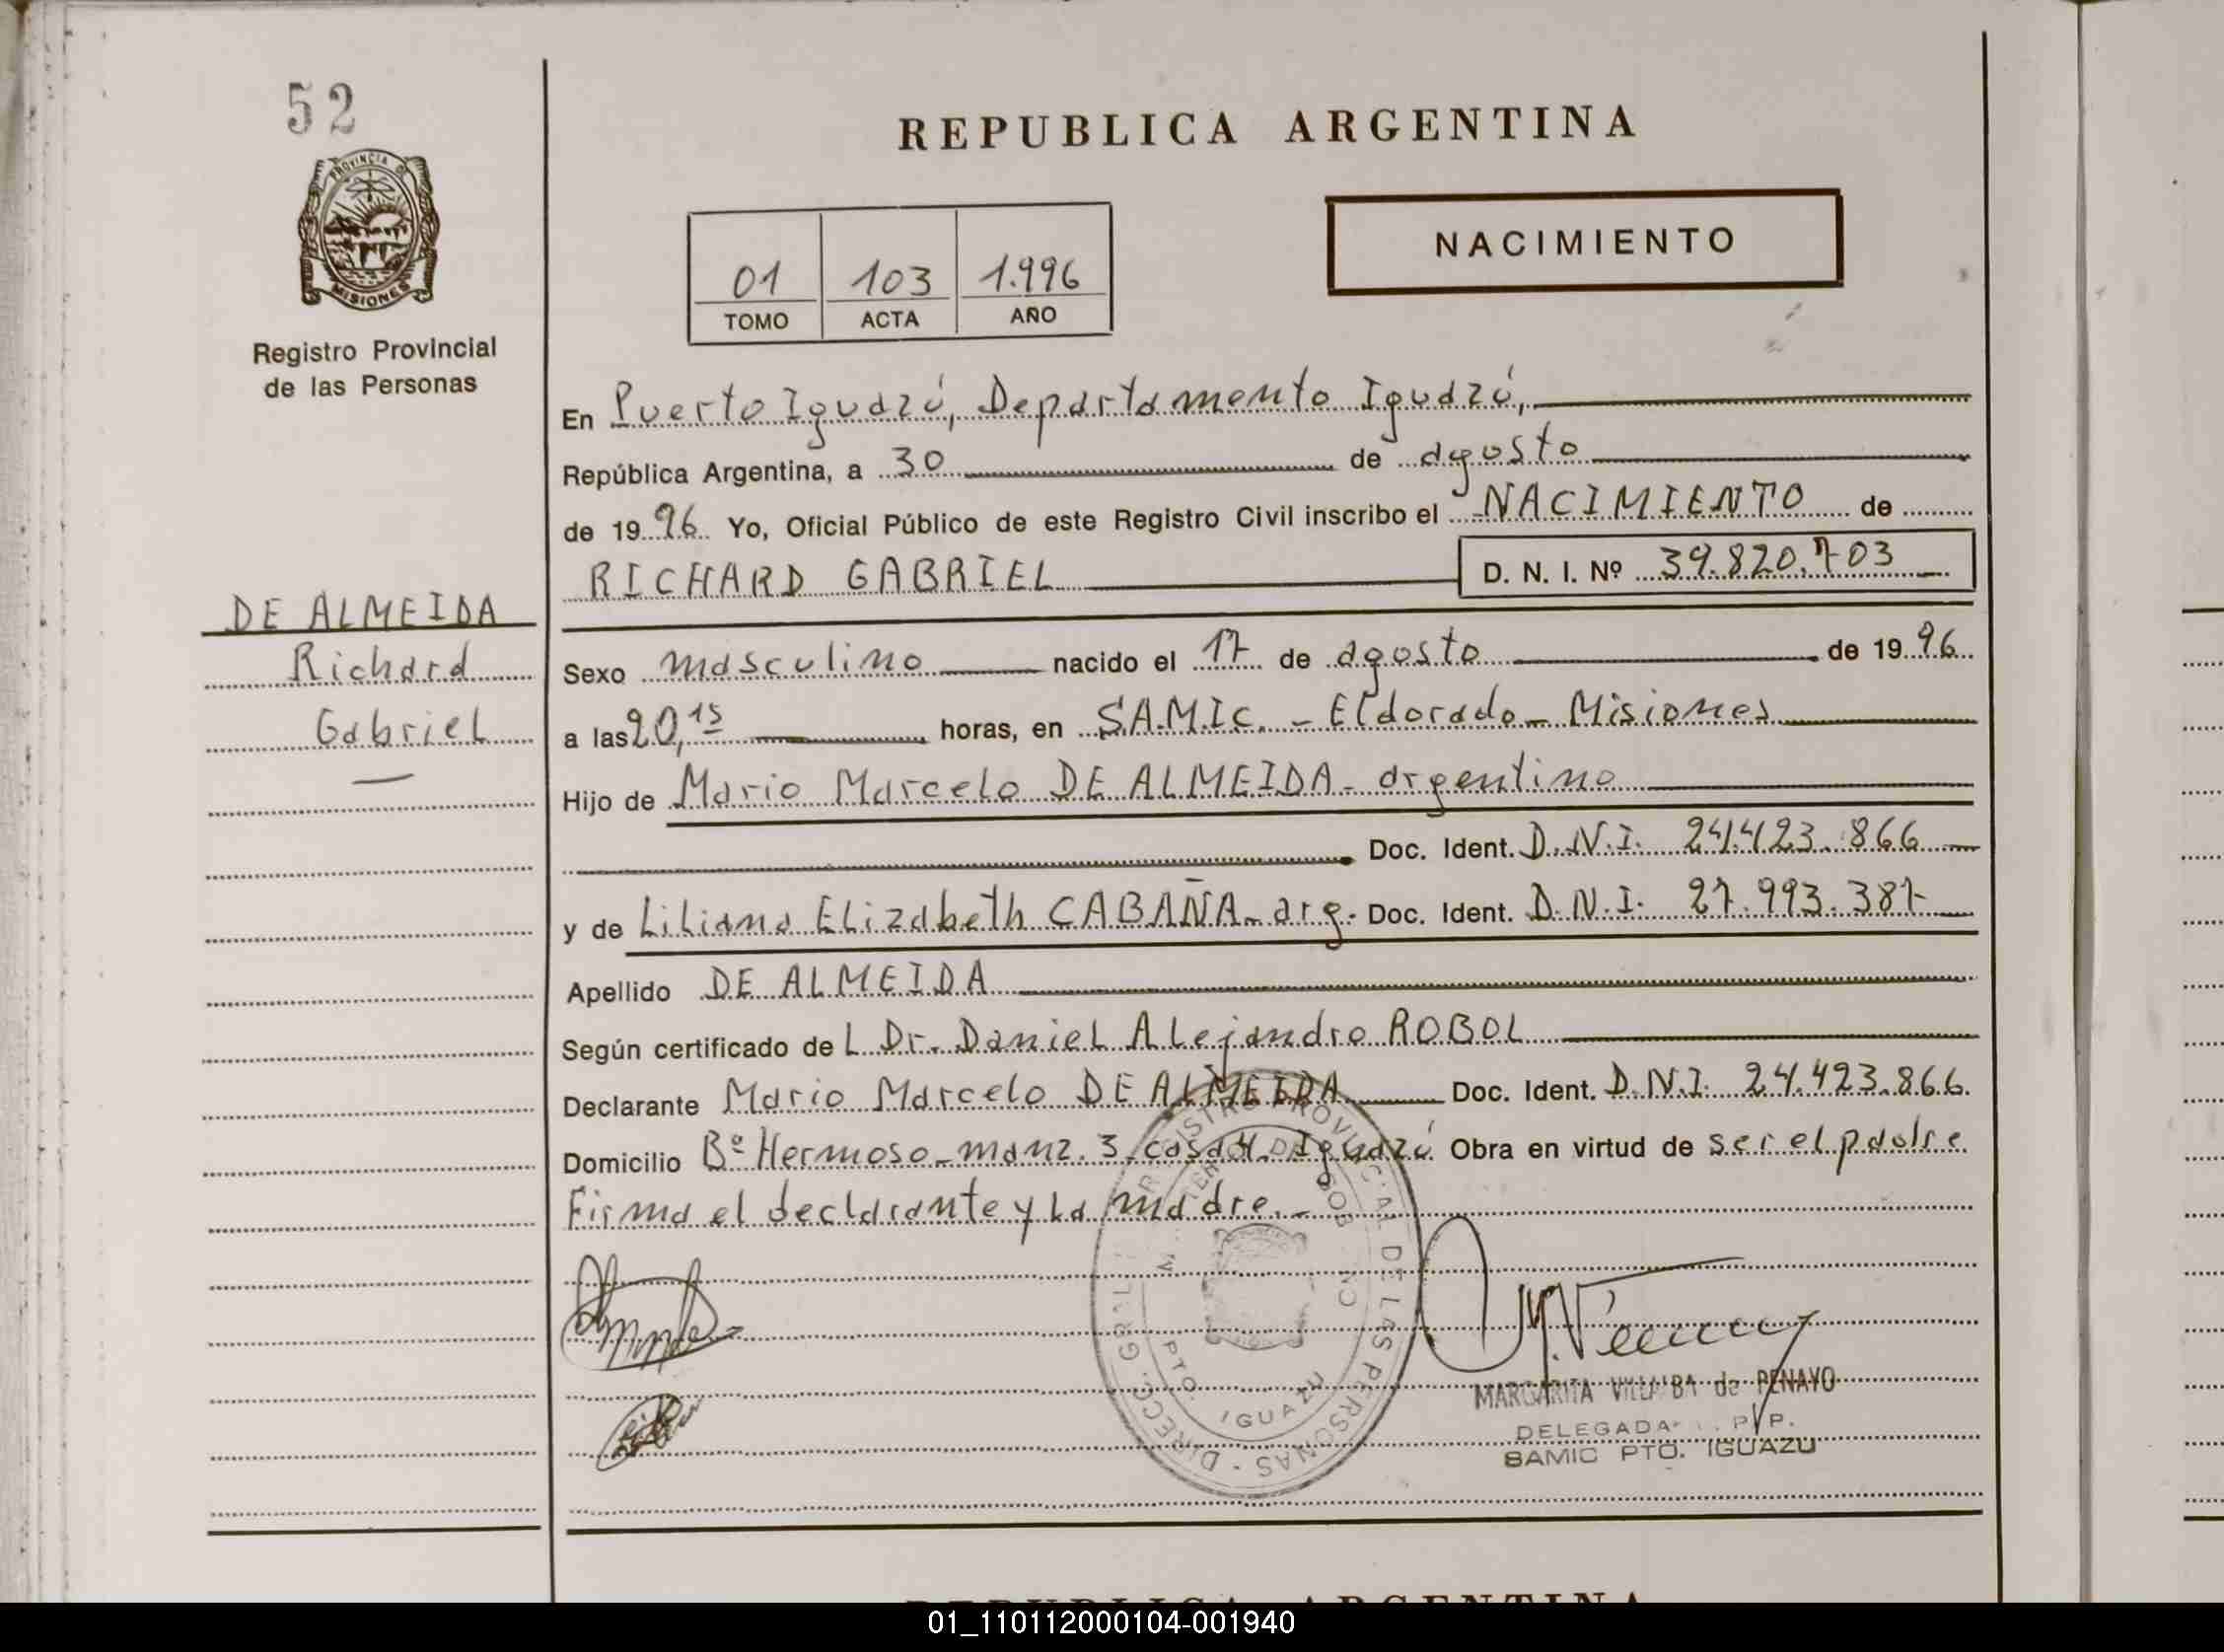 52
PROVINCIA DE
MISIONES
Registro Provincial
de las Personas
DE ALMEIDA
Richard
Gabriel
REPUBLICA ARGENTINA
01 103 1.996
TOMO ACTA AÑO
NACIMIENTO
En Puerto Iguazú, Departamento Iguazú,
República Argentina, a 30 de agosto
de 1996 Yo, Oficial Público de este Registro Civil inscribo el NACIMIENTO de
RICHARD GABRIEL D. N. I. Nº 39.820.703
Sexo masculino nacido el 17 de agosto de 1996
a las 20,15 horas, en S.A.M.I.C. - Eldorado - Misiones
Hijo de Mario Marcelo DE ALMEIDA - argentino
Doc. Ident. D.N.I. 24.423.866
y de Liliana Elizabeth CABAÑA - arg. Doc. Ident. D.N.I. 27.993.387
Apellido DE ALMEIDA
Según certificado de L Dr. Daniel Alejandro ROBOL
Declarante Mario Marcelo DE ALMEIDA Doc. Ident. D.N.I. 24.423.866.
Domicilio Bº Hermoso - manz. 3 casa 4 - Iguazú Obra en virtud de ser el padre
Firma el declarante y la madre. -
DIRECC. GRAL. REGISTRO PROVINCIAL DE LAS PERSONAS
PTO. IGUAZU
MARGARITA VILLALBA de PENAYO
DELEGADA P.P.
SAMIC PTO. IGUAZU
REPUBLICA ARGENTINA
01_110112000104-001940